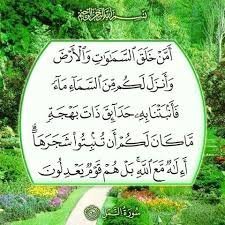 بسم الله الرحمن الرحيم
أَمَّنْ خَلَقَ السَّمَٰوَٰتِ وَالْأَرْضَ
وَأَنزَلَ لَكُم مِّنَ السَّمَآءِ مَآءً
فَأَنۢبَتْنَا بِهِۦ حَدَآئِقَ ذَاتَ بَهْجَةٍ
مَّا كَانَ لَكُمْ أَن تُنۢبِتُوا۟ شَجَرَهَآ
أَءِلَٰهٌ مَّعَ اللَّهِ ۚ بَلْ هُمْ قَوْمٌ يَعْدِلُونَ
سورة النمل